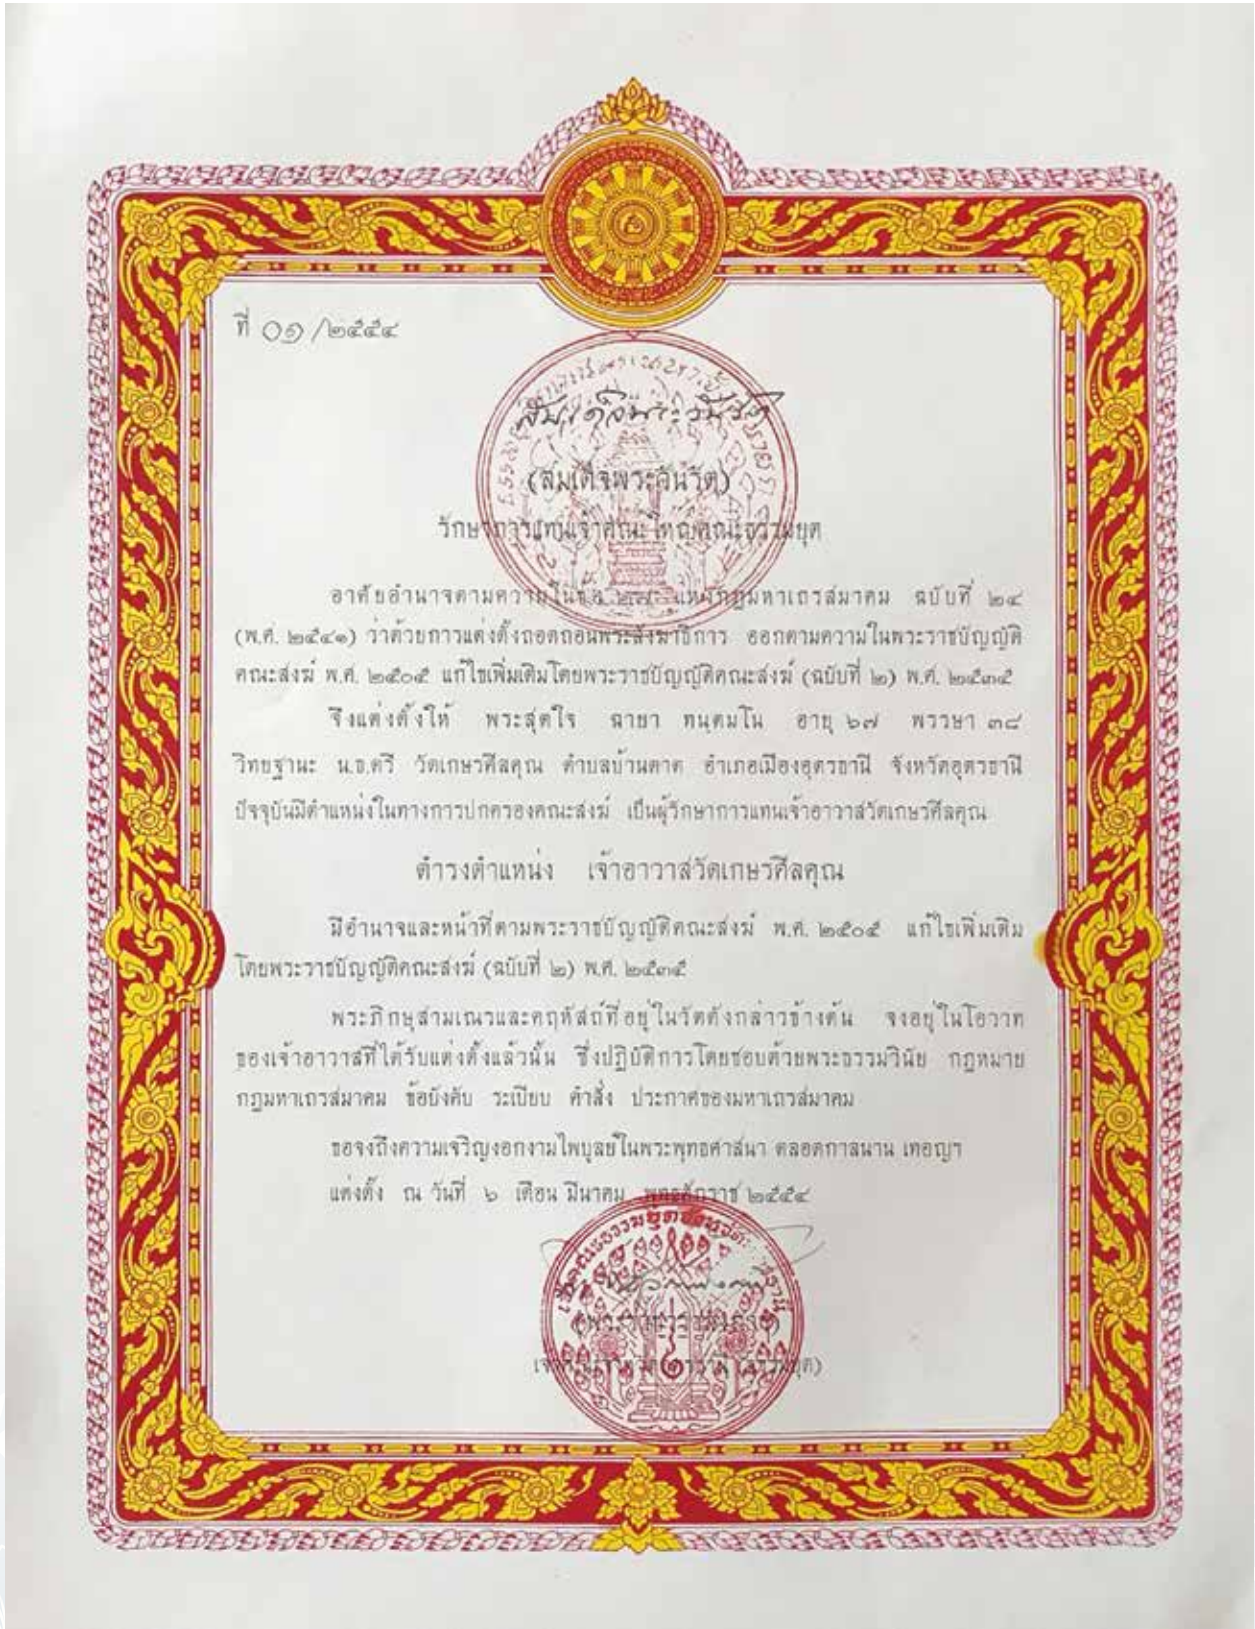 ที่ ๐๑/๒๕๕๔
สมเด็จพระวันรัต
(สมเด็จพระวันรัต)
รักษาการแทนเจ้าคณะใหญ่คณะธรรมยุต
อาศัยอำนาจตามความในข้อ ๒๗ แห่งกฎมหาเถรสมาคม ฉบับที่ ๒๔
(พ.ศ. ๒๕๔๑) ว่าด้วยการแต่งตั้งถอดถอนพระสังฆาธิการ ออกตามความในพระราชบัญญัติ
คณะสงฆ์ พ.ศ. ๒๕๐๕ แก้ไขเพิ่มเติมโดยพระราชบัญญัติคณะสงฆ์ (ฉบับที่ ๒) พ.ศ. ๒๕๓๕
จึงแต่งตั้งให้ พระสุดใจ ฉายา ทนฺตมโน อายุ ๖๗ พรรษา ๓๘
วิทยฐานะ น.ธ.ตรี วัดเกษรศีลคุณ ตำบลบ้านตาด อำเภอเมืองอุดรธานี จังหวัดอุดรธานี
ปัจจุบันมีตำแหน่งในทางการปกครองคณะสงฆ์ เป็นผู้รักษาการแทนเจ้าอาวาสวัดเกษรศีลคุณ
ดำรงตำแหน่ง เจ้าอาวาสวัดเกษรศีลคุณ
มีอำนาจและหน้าที่ตามพระราชบัญญัติคณะสงฆ์ พ.ศ. ๒๕๐๕ แก้ไขเพิ่มเติม
โดยพระราชบัญญัติคณะสงฆ์ (ฉบับที่ ๒) พ.ศ. ๒๕๓๕
พระภิกษุสามเณรและคฤหัสถ์ที่อยู่ในวัดดังกล่าวข้างต้น จงอยู่ในโอวาท
ของเจ้าอาวาสที่ได้รับแต่งตั้งแล้วนั้น ซึ่งปฏิบัติการโดยชอบด้วยพระธรรมวินัย กฎหมาย
กฎมหาเถรสมาคม ข้อบังคับ ระเบียบ คำสั่ง ประกาศของมหาเถรสมาคม
ขอจงถึงความเจริญงอกงามไพบูลย์ในพระพุทธศาสนา ตลอดกาลนาน เทอญฯ
แต่งตั้ง ณ วันที่ ๖ เดือน มีนาคม พุทธศักราช ๒๕๕๔
เจ้าคณะจังหวัดอุดรธานี (ธรรมยุต)